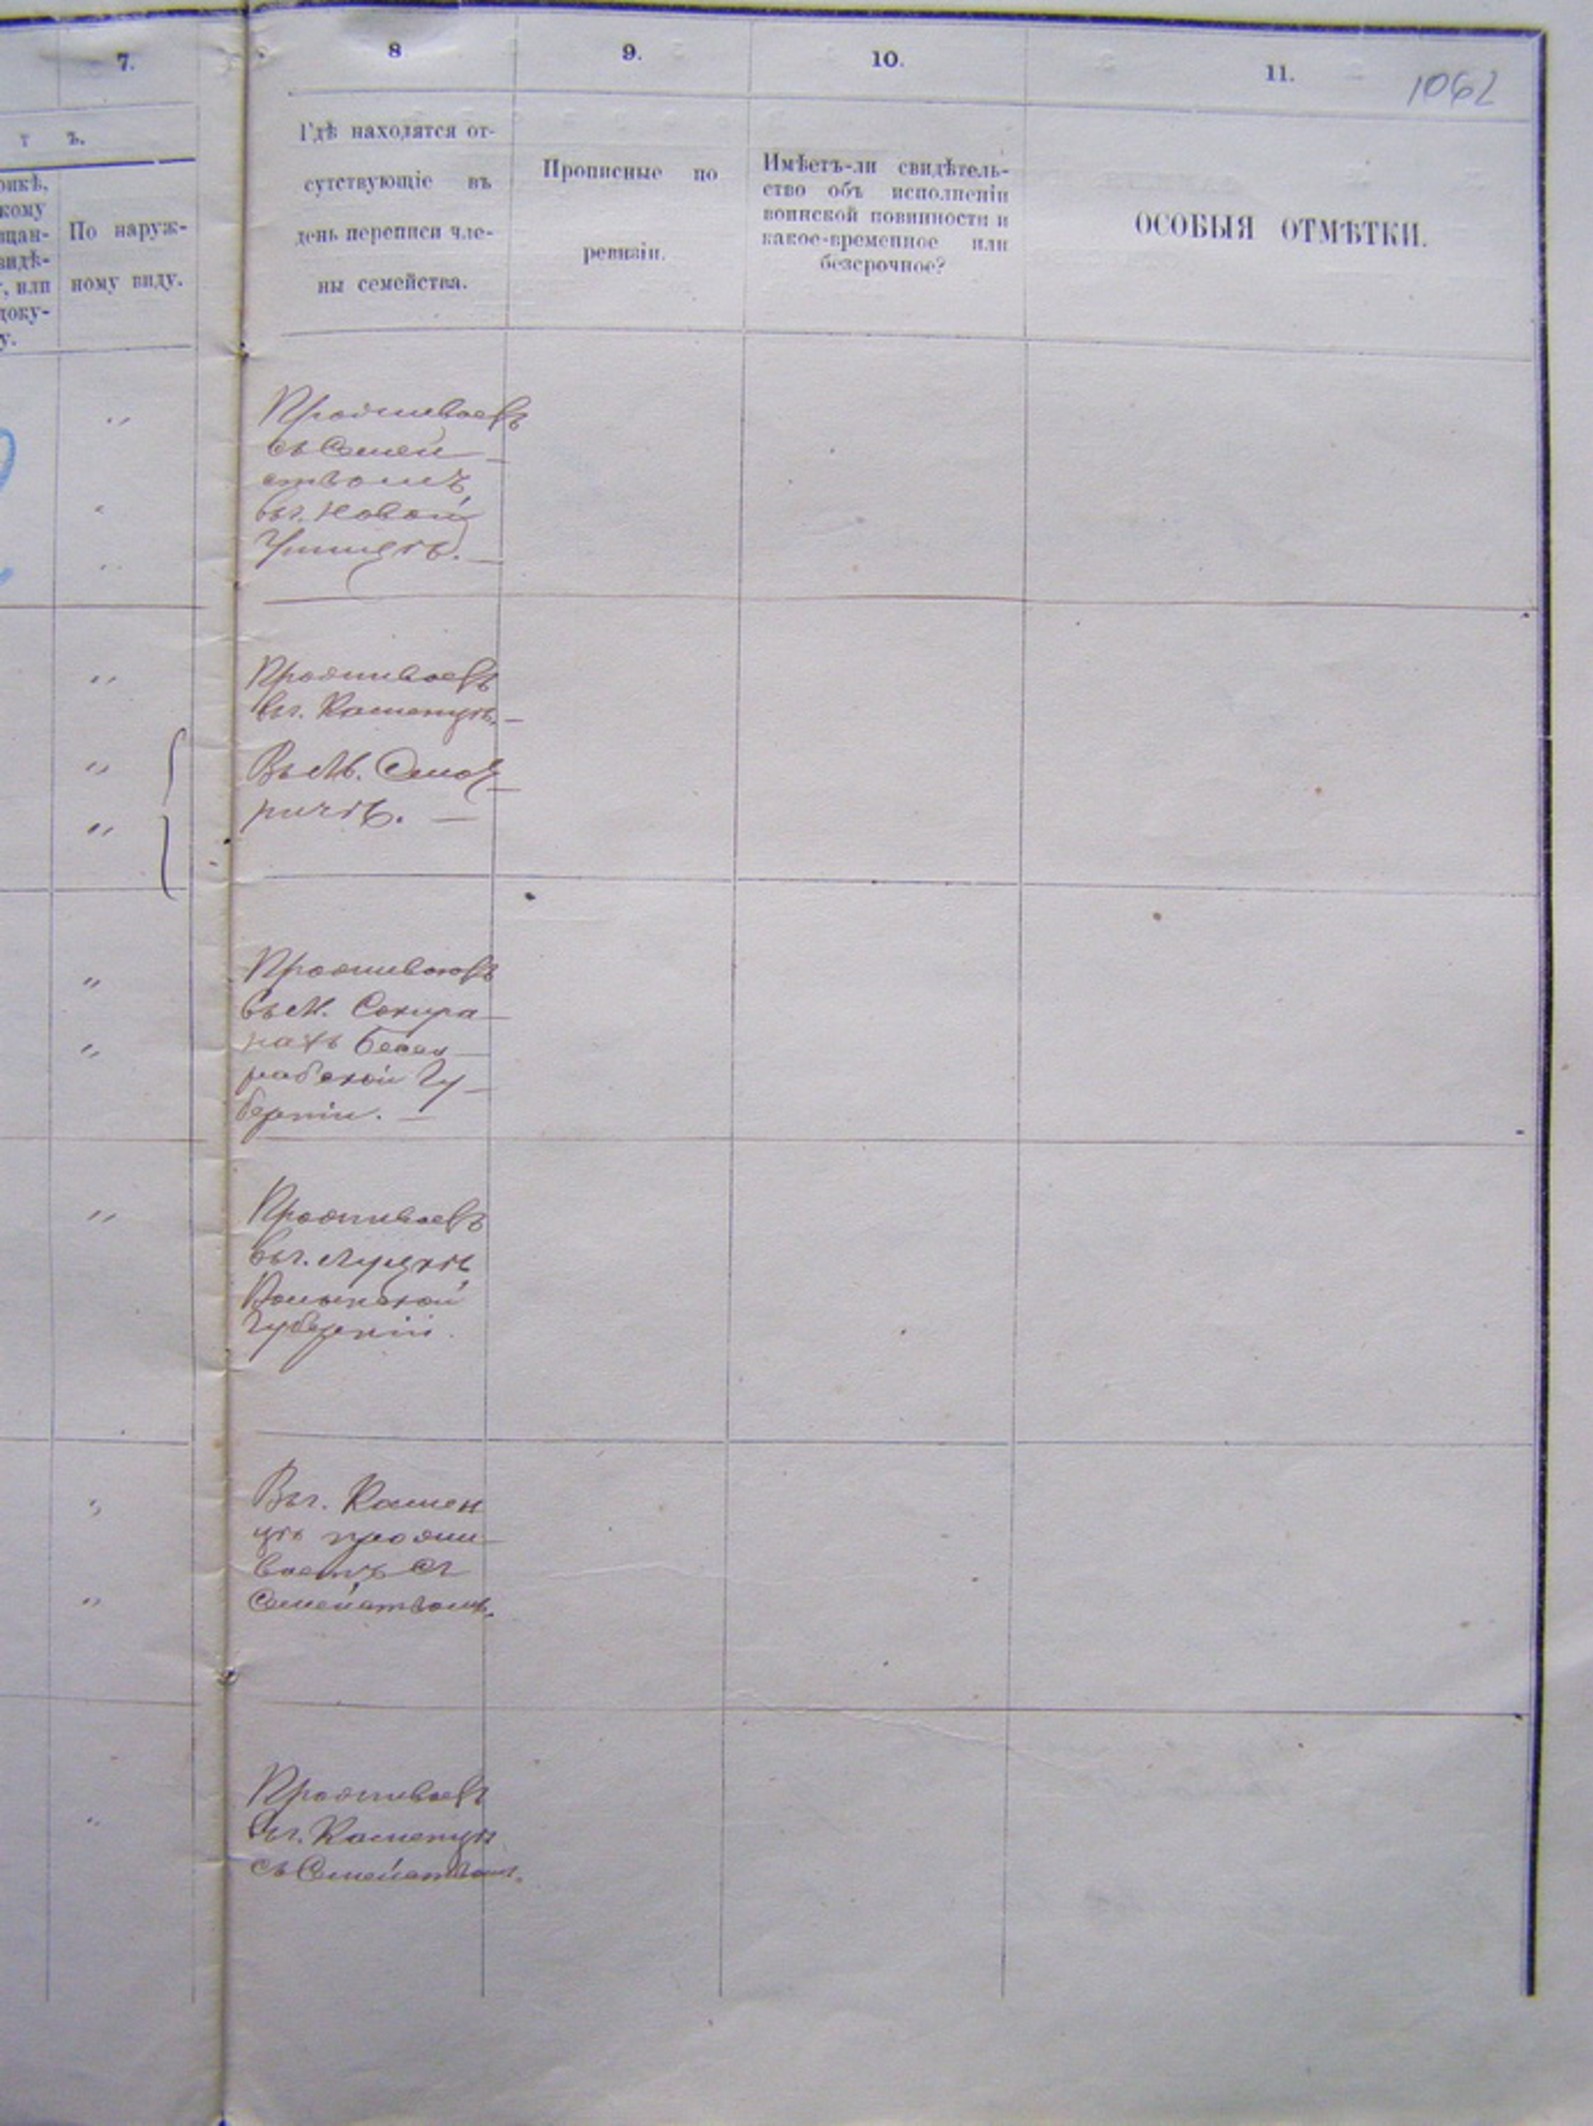 7.
8
9.
10.
11.
1062
т ъ.
По наруж-
ному виду.
Гдѣ находятся от-
сутствующіе въ
день переписи чле-
ны семейства.
Прописные по
ревизіи.
Имѣетъ-ли свидѣтель-
ство объ исполненіи
воинской повинности и
какое-временное или
безсрочное?
ОСОБЫЯ ОТМѢТКИ.
Проживаетъ
съ Семей-
ствомъ
въ г. Новой
Ушицѣ.
Проживаетъ
въ г. Каменцѣ.
Въ М. Смот-
ричѣ.
Проживаютъ
въ М. Секуря-
нахъ Бесса-
рабской Гу-
берніи.
Проживаетъ
въ г. Луцкѣ
Волынской
Губерніи.
Въ г. Камен
цѣ прожи-
ваетъ съ
Семействомъ.
Проживаетъ
въ г. Каменцѣ
съ Семействомъ.